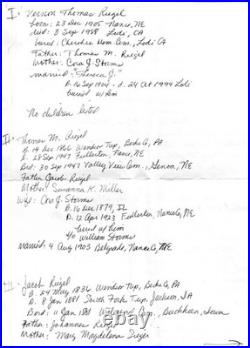 I: Vernon Thomas Riegel
born: 23 Dec 1905 Nance, NE
died: 3 Sep 1988 Lodi, CA
buried: Cherokee Mem. Cem., Lodi CA
Father: Thomas M. Riegel
Mother: Cora J. Storms
married: "Theresa J."
B. 16 Sep d. 24 Oct 1994 Lodi
buried w/him
No children listed
II: Thomas M. Riegel
B. 14 Dec 1866 Windsor Twp, Berks Co, PA
D. 28 Sep 1947 Fullerton, Nance, NE
Brd. 30 Sep 1947 Valley View Cem., Genoa, NE
Father Jacob Riegel
Mother Susanna K. Miller
Wife: Cora J. Storms
B. 16 Dec 1879, IL
D. 12 Apr 1923 Fullerton, Nance Co, NE
buried w/him
William Storms
Married: 4 Aug 1903 Belgrade, Nance Co, NE
III: Jacob Riegel
B. 24 May 1836 Windsor Twp, Berks Co, PA
D. 8 Jan 1881 South Fork Twp, Jackson, IA
Burd: 11 Jan 1881 Cem., Buchhan, Iowa
Father: Johannes Riegel
Mother: Mary Magdalena